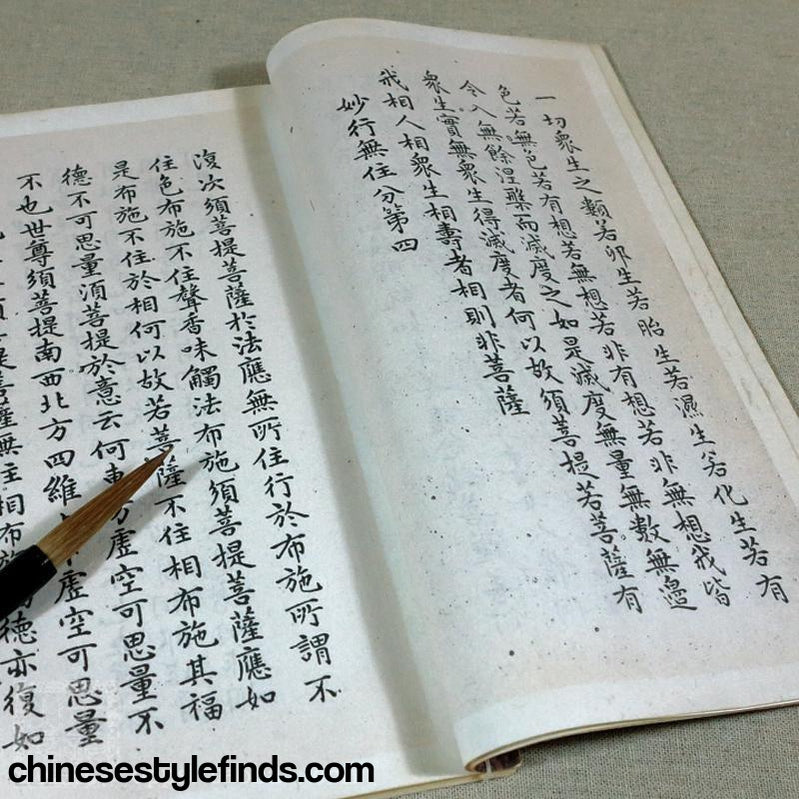 一切眾生之類若卵生若胎生若濕生若化生若有
色若無色若有想若無想若非有想若非無想我皆
令入無餘涅槃而滅度之如是滅度無量無數無邊
眾生實無眾生得滅度者何以故須菩提若菩薩有
我相人相眾生相壽者相則非菩薩
妙行無住分第四
復次須菩提菩薩於法應無所住行於布施所謂不
住色布施不住聲香味觸法布施須菩提菩薩應如
是布施不住於相何以故若菩薩不住相布施其福
德不可思量須菩提於意云何東方虛空可思量不
不也世尊須菩提南西北方四維虛空可思量
菩提菩薩無住相布施德亦復如
chinesestylefinds.com